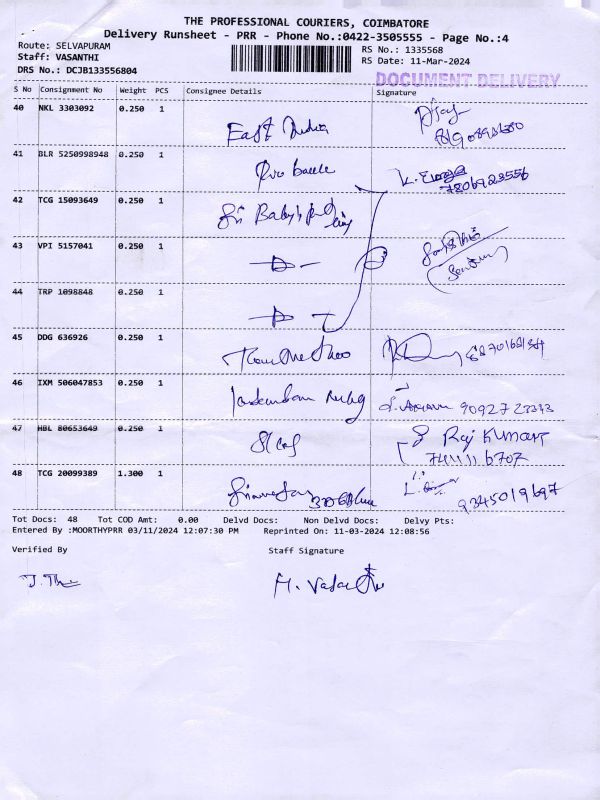 THE PROFESSIONAL COURIERS, COIMBATORE
Delivery Runsheet - PRR - Phone No.:0422-3505555 - Page No.:4
Route: SELVAPURAM
Staff: VASANTHI
DRS No.: DCJB133556804
RS No.: 1335568
RS Date: 11-Mar-2024
DOCUMENT DELIVERY
S No Consignment No Weight PCS Consignee Details Signature
40 NKL 3303092 0.250 1
East India
41 BLR 5250998948 0.250 1
7806923556
42 TCG 15093649 0.250 1
Sri
43 VPI 5157041 0.250 1
44 TRP 1098848 0.250 1
45 DDG 636926 0.250 1
46 IXM 506047853 0.250 1
9092723343
47 HBL 80653649 0.250 1
Raj Kumar
48 TCG 20099389 1.300 1
L.
9345019697
Tot Docs: 48 Tot COD Amt: 0.00 Delvd Docs: Non Delvd Docs: Delvy Pts:
Entered By :MOORTHYPRR 03/11/2024 12:07:30 PM Reprinted On: 11-03-2024 12:08:56
Verified By Staff Signature